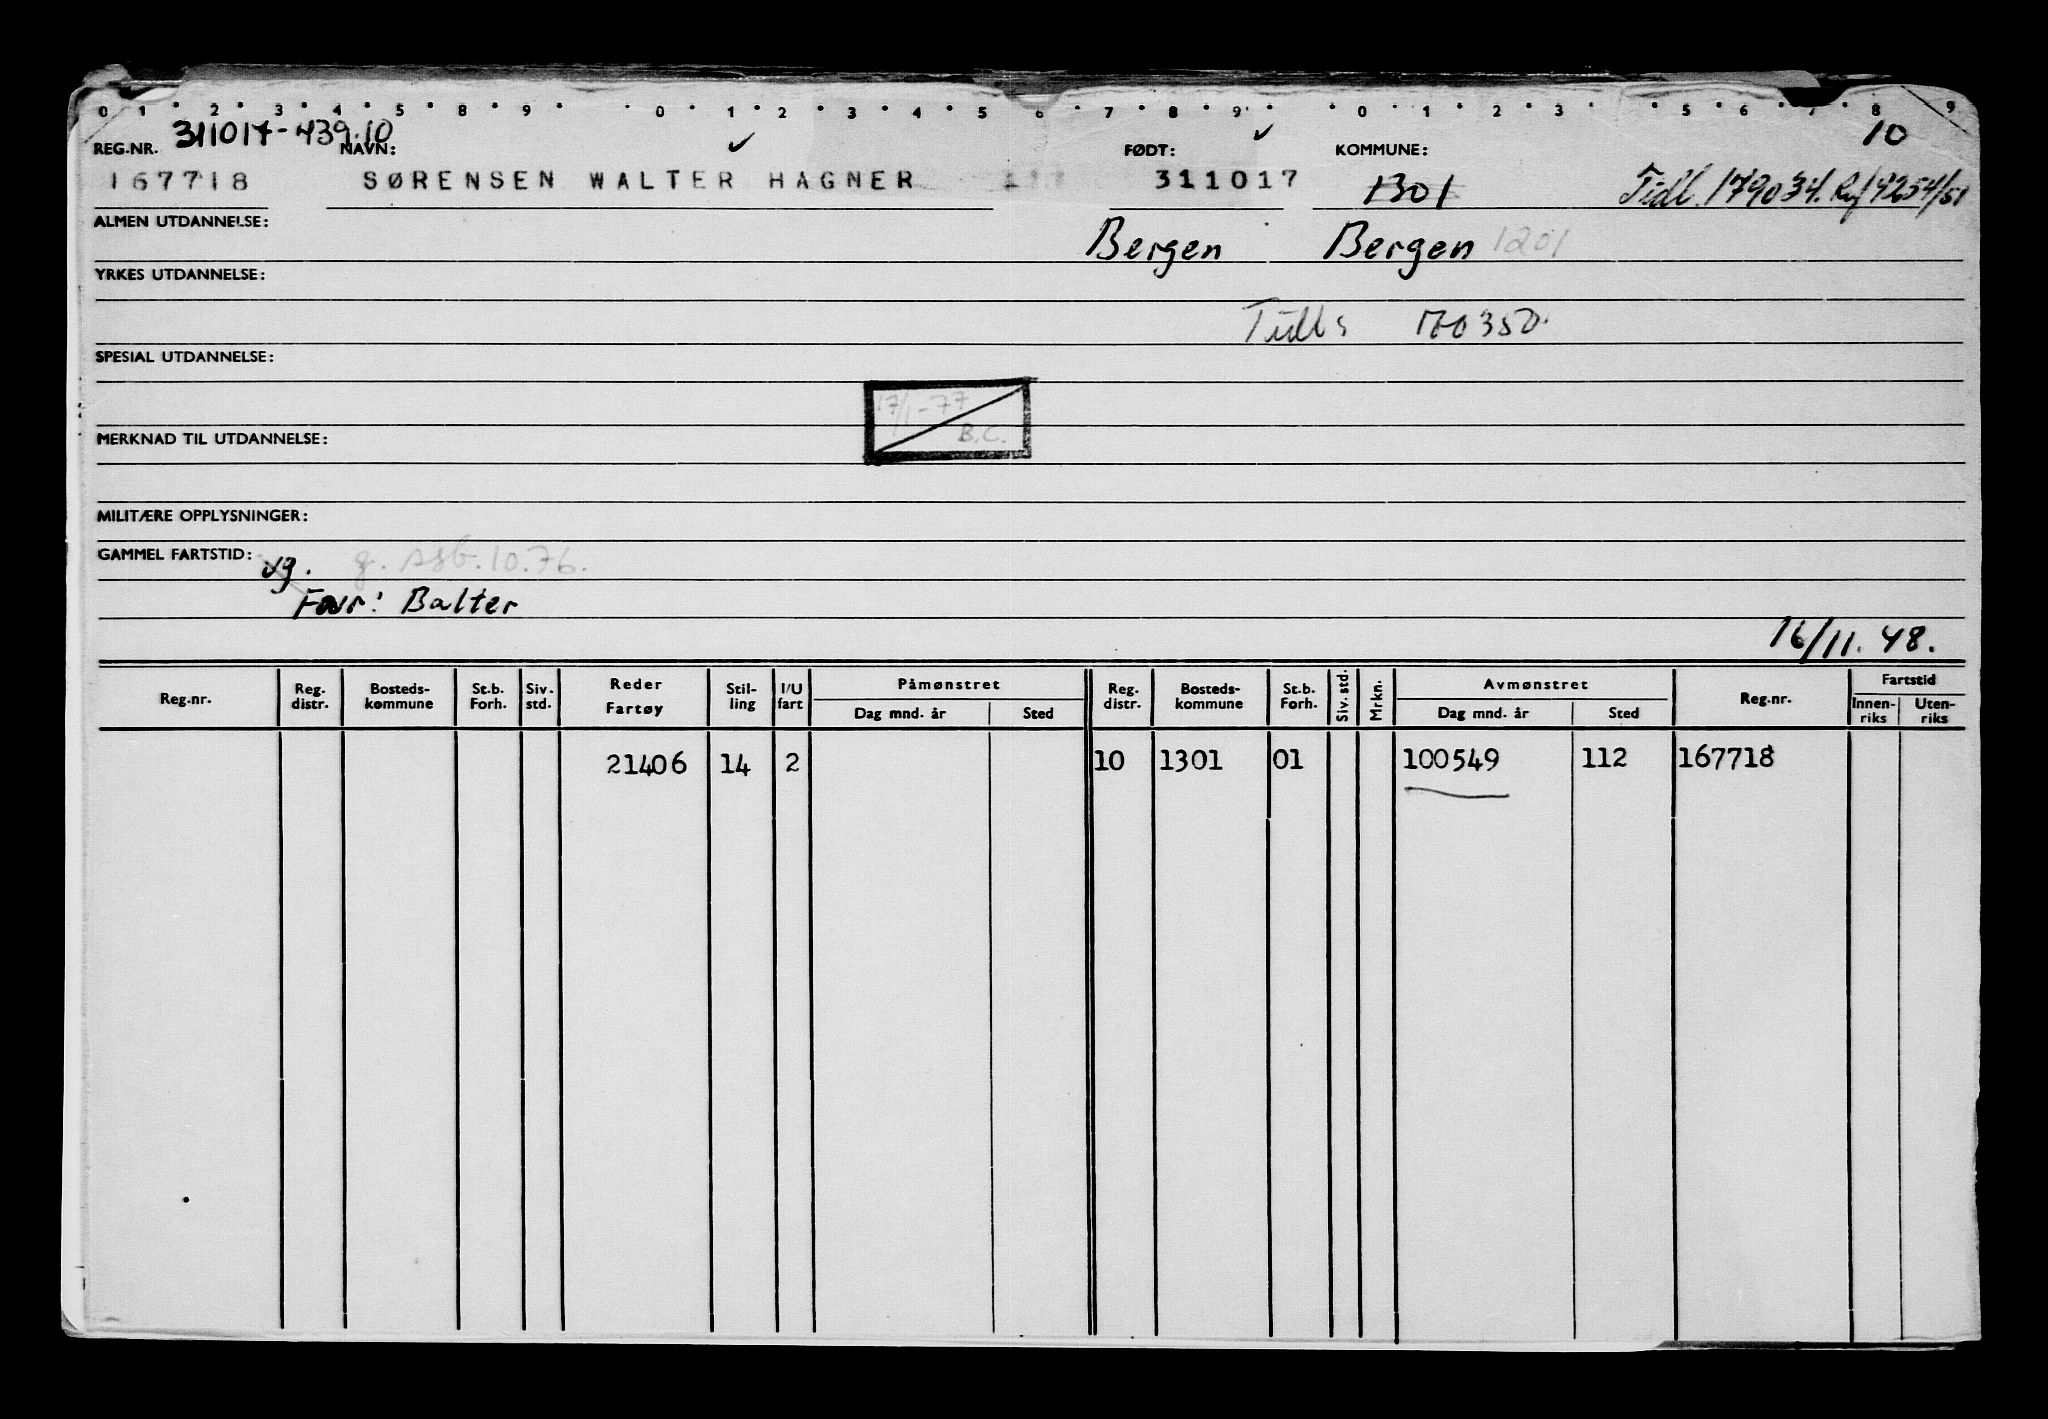 0 1 2 3 4 5 8 9 0 1 2 3 4 5 6 7 8 9 0 1 2 3 5 6 7 8 9
311017-439.10
10
REG.NR. NAVN: FØDT: KOMMUNE:
167718 SØRENSEN WALTER HAGNER 311017 1301 Tidl. 179034. 4254/51
ALMEN UTDANNELSE: Bergen Bergen 1201
YRKES UTDANNELSE:
170350.
SPESIAL UTDANNELSE:
17/1-77
B.C.
MERKNAD TIL UTDANNELSE:
MILITÆRE OPPLYSNINGER:
GAMMEL FARTSTID: vg. 10.76.
Far: Balter
16/11.48.
Reg.nr. Reg. distr. Bosteds-kommune St.b. Forh. Siv. std. Reder Fartøy Stil-ling I/U fart Påmønstret Dag mnd. år Sted Reg. distr. Bosteds-kommune St.b. Forh. Siv. std. Mrkn. Avmønstret Dag mnd. år Sted Reg.nr. Fartstid Innen-riks Uten-riks
21406 14 2 10 1301 01 100549 112 167718